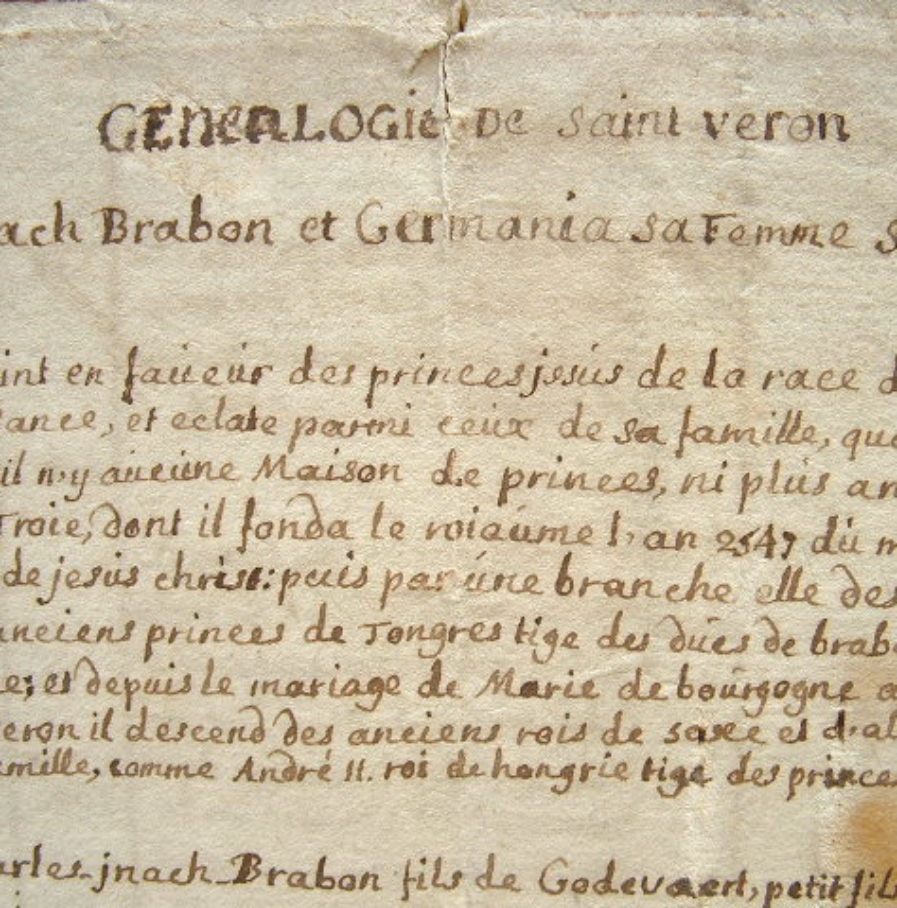 GENEALOGIE DE saint veron
ach Brabon et Germania sa Femme s
int en faveur des princes jssús de la race d
ance, et eclate parmi ceux de sa famille, que
il n'y aucúne Maison de princes, ni plús an
Troie, dont il fonda le roiaúme l'an 2547 dú m
de jesús christ: puis par úne branche elle des
anciens princes de Tongres tige des dúcs de brab
e; et depuis le mariage de Marie de boúrgogne a
eron il descend des anciens rois de saxe et d'al
amille, comme André II. roi de hongrie tige des princes
arles jnach Brabon fils de Godevaert, petit fils